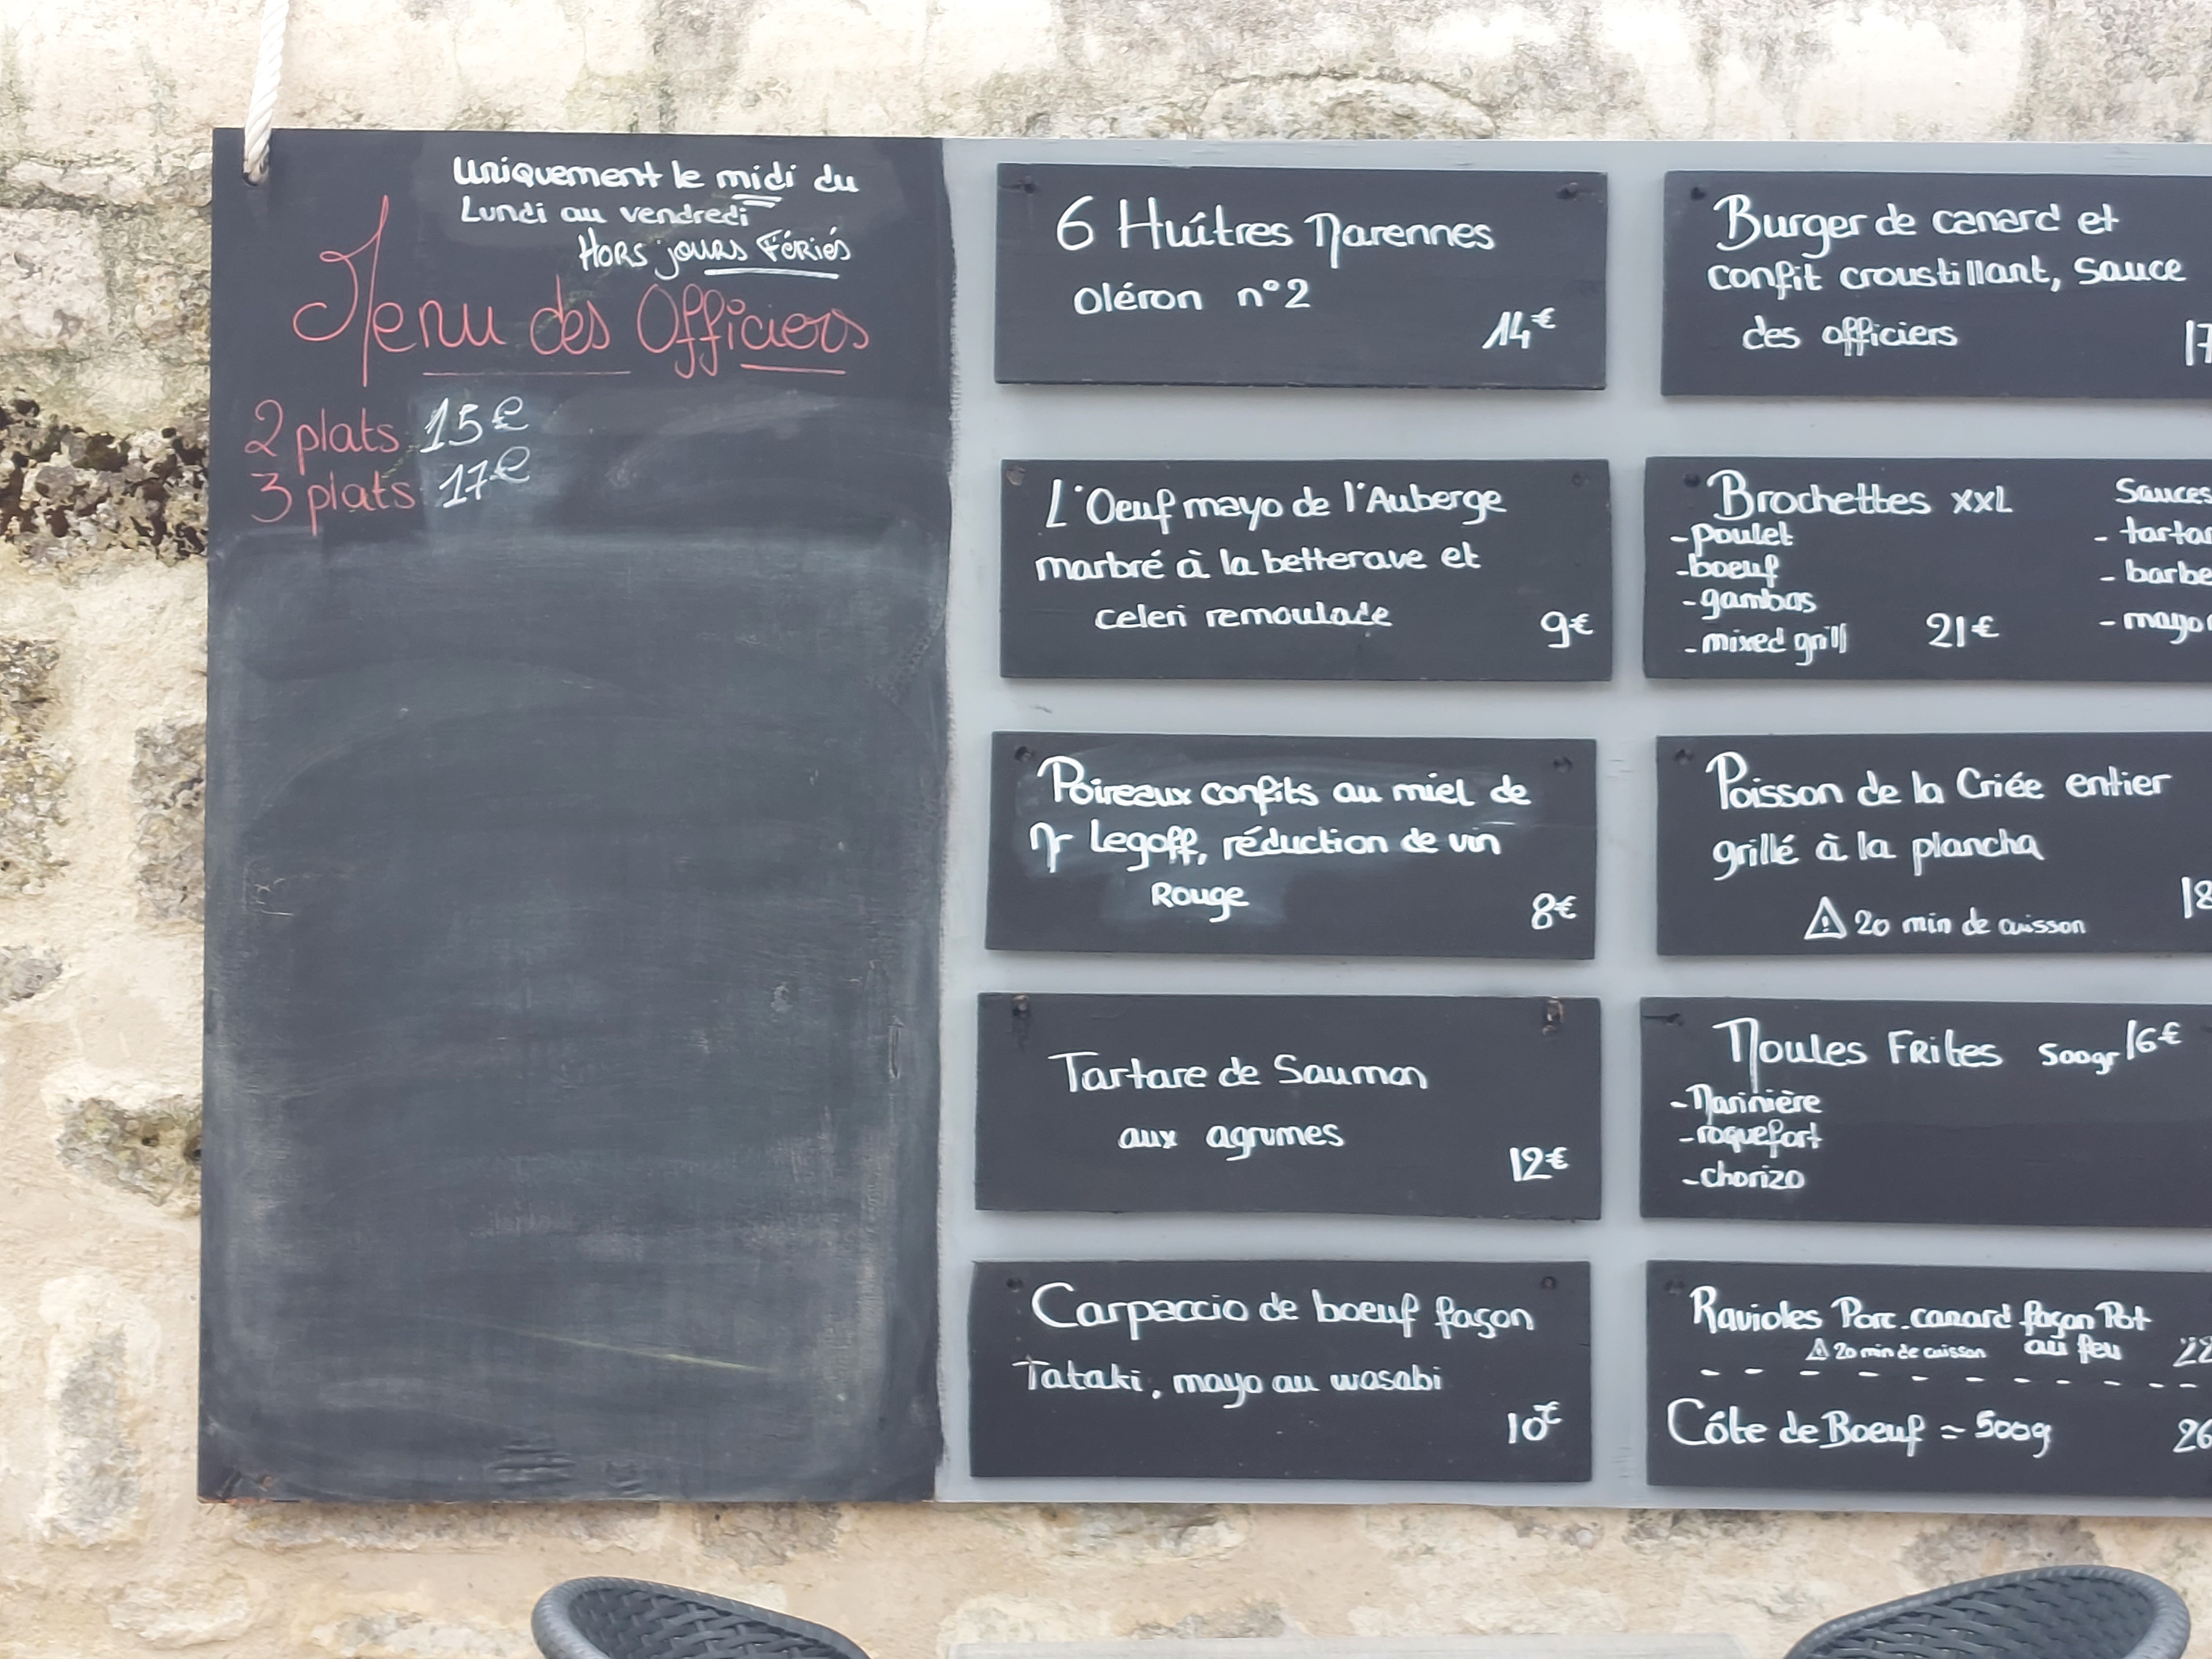 uniquement le midi du
Lundi au vendredi
Hors jours Fériés
Menu des Officiers
2 plats 15€
3 plats 17€
6 Huîtres Marennes
Oléron n°2
14€
L'Oeuf mayo de l'Auberge
marbré à la betterave et
celeri remoulade
9€
Poireaux confits au miel de
Mr Legoff, réduction de vin
Rouge
8€
Tartare de Saumon
aux agrumes
12€
Carpaccio de boeuf façon
Tataki, mayo au wasabi
10€
Burger de canard et
confit croustillant, sauce
des officiers
17
Brochettes XXL
- poulet
- boeuf
- gambas
- mixed grill
21€
Sauces
- tartar
- barbe
- mayo
Poisson de la Criée entier
grillé à la plancha
18
⚠ 20 min de cuisson
Moules Frites 500gr 16€
- Marinière
- roquefort
- chorizo
Ravioles Porc-canard façon Pot
⚠ 20 min de cuisson au feu
Côte de Boeuf = 500g
26